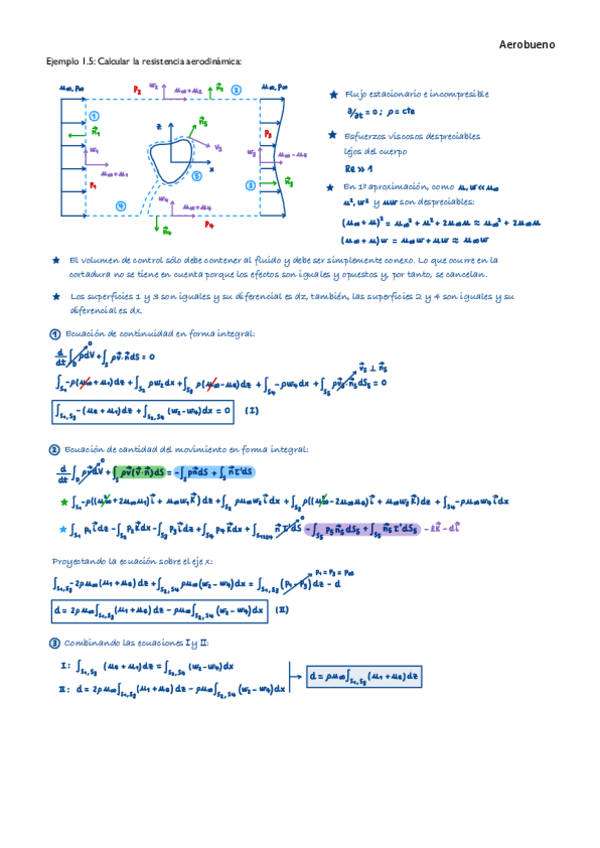 Aerobueno
Ejemplo 1.5: Calcular la resistencia aerodinámica:
u∞, p∞
p₂
w₂
u∞+u₂
n⃗₁
②
u∞, p∞
①
n⃗₁
w₁
u∞+u₁
p₁
z
x
n⃗₅
v₅
⑤
p₃
w₃
u∞-u₃
③
n⃗₃
④
w₄
u∞+u₄
p₄
n⃗₄
★ Flujo estacionario e incompresible
∂/∂t = 0 ; ρ = cte
★ Esfuerzos viscosos despreciables
lejos del cuerpo
Re >> 1
★ En 1ª aproximación, como u, w << u∞
u², w² y uw son despreciables:
(u∞ + u)² = u∞² + u² + 2u∞u ≈ u∞² + 2u∞u
(u∞ + u)w = u∞w + uw ≈ u∞w
★ El volumen de control sólo debe contener al fluido y debe ser simplemente conexo. Lo que ocurre en la
cortadura no se tiene en cuenta porque los efectos son iguales y opuestos y, por tanto, se cancelan.
★ Los superficies 1 y 3 son iguales y su diferencial es dz, también, las superficies 2 y 4 son iguales y su
diferencial es dx.
① Ecuación de continuidad en forma integral:
d/dt ∫ ρdV + ∫ ρv⃗·n⃗dS = 0
v⃗₅ ⊥ n⃗₅
∫S₁ -ρ(u∞+u₁)dz + ∫S₂ ρw₂dx + ∫S₃ ρ(u∞-u₃)dz + ∫S₄ -ρw₄dx + ∫S₅ ρv⃗₅·n⃗₅dS₅ = 0
∫S₁,S₃ -(u₃+u₁)dz + ∫S₂,S₄ (w₂-w₄)dx = 0 (I)
② Ecuación de cantidad del movimiento en forma integral:
d/dt ∫ ρv⃗dV + ∫ ρv⃗(v⃗·n⃗)dS = -∫ pn⃗dS + ∫ n⃗τ'dS
Proyectando la ecuación sobre el eje x:
p₁ = p₃ = p∞
∫S₁,S₃ -2ρu∞(u₁+u₃)dz + ∫S₂,S₄ ρu∞(w₂-w₄)dx = ∫S₁,S₃ (p₁-p₃)dz - d
d = 2ρu∞∫S₁,S₃ (u₁+u₃)dz - ρu∞∫S₂,S₄ (w₂-w₄)dx (II)
③ Combinando las ecuaciones I y II:
I: ∫S₁,S₃ (u₃+u₁)dz = ∫S₂,S₄ (w₂-w₄)dx
II: d = 2ρu∞∫S₁,S₃ (u₁+u₃)dz - ρu∞∫S₂,S₄ (w₂-w₄)dx
d = ρu∞∫S₁,S₃ (u₁+u₃)dz